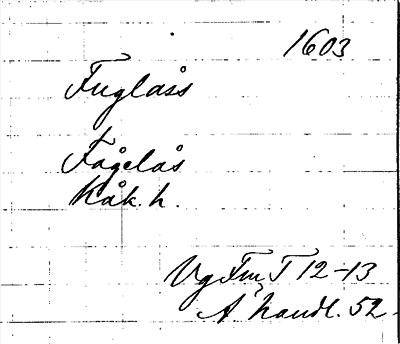 1603
Fuglåss
Fågelås
Kåk. h.
Vg Fm T 12-13
A handl. 52